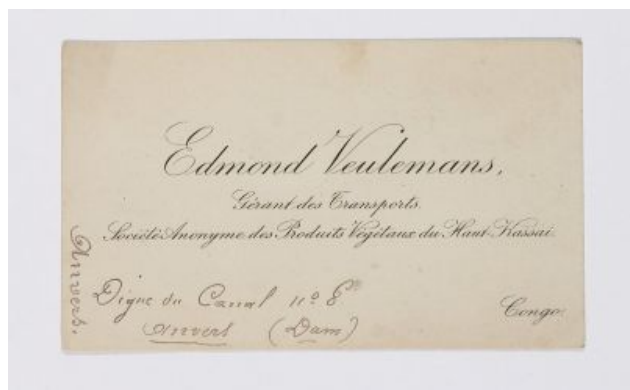 Edmond Veulemans,
Gérant des Transports.
Société Anonyme des Produits Végétaux du Haut-Kassaï.
Digue du Canal nº 6
Anvers (Dam)
Congo.
Anvers.